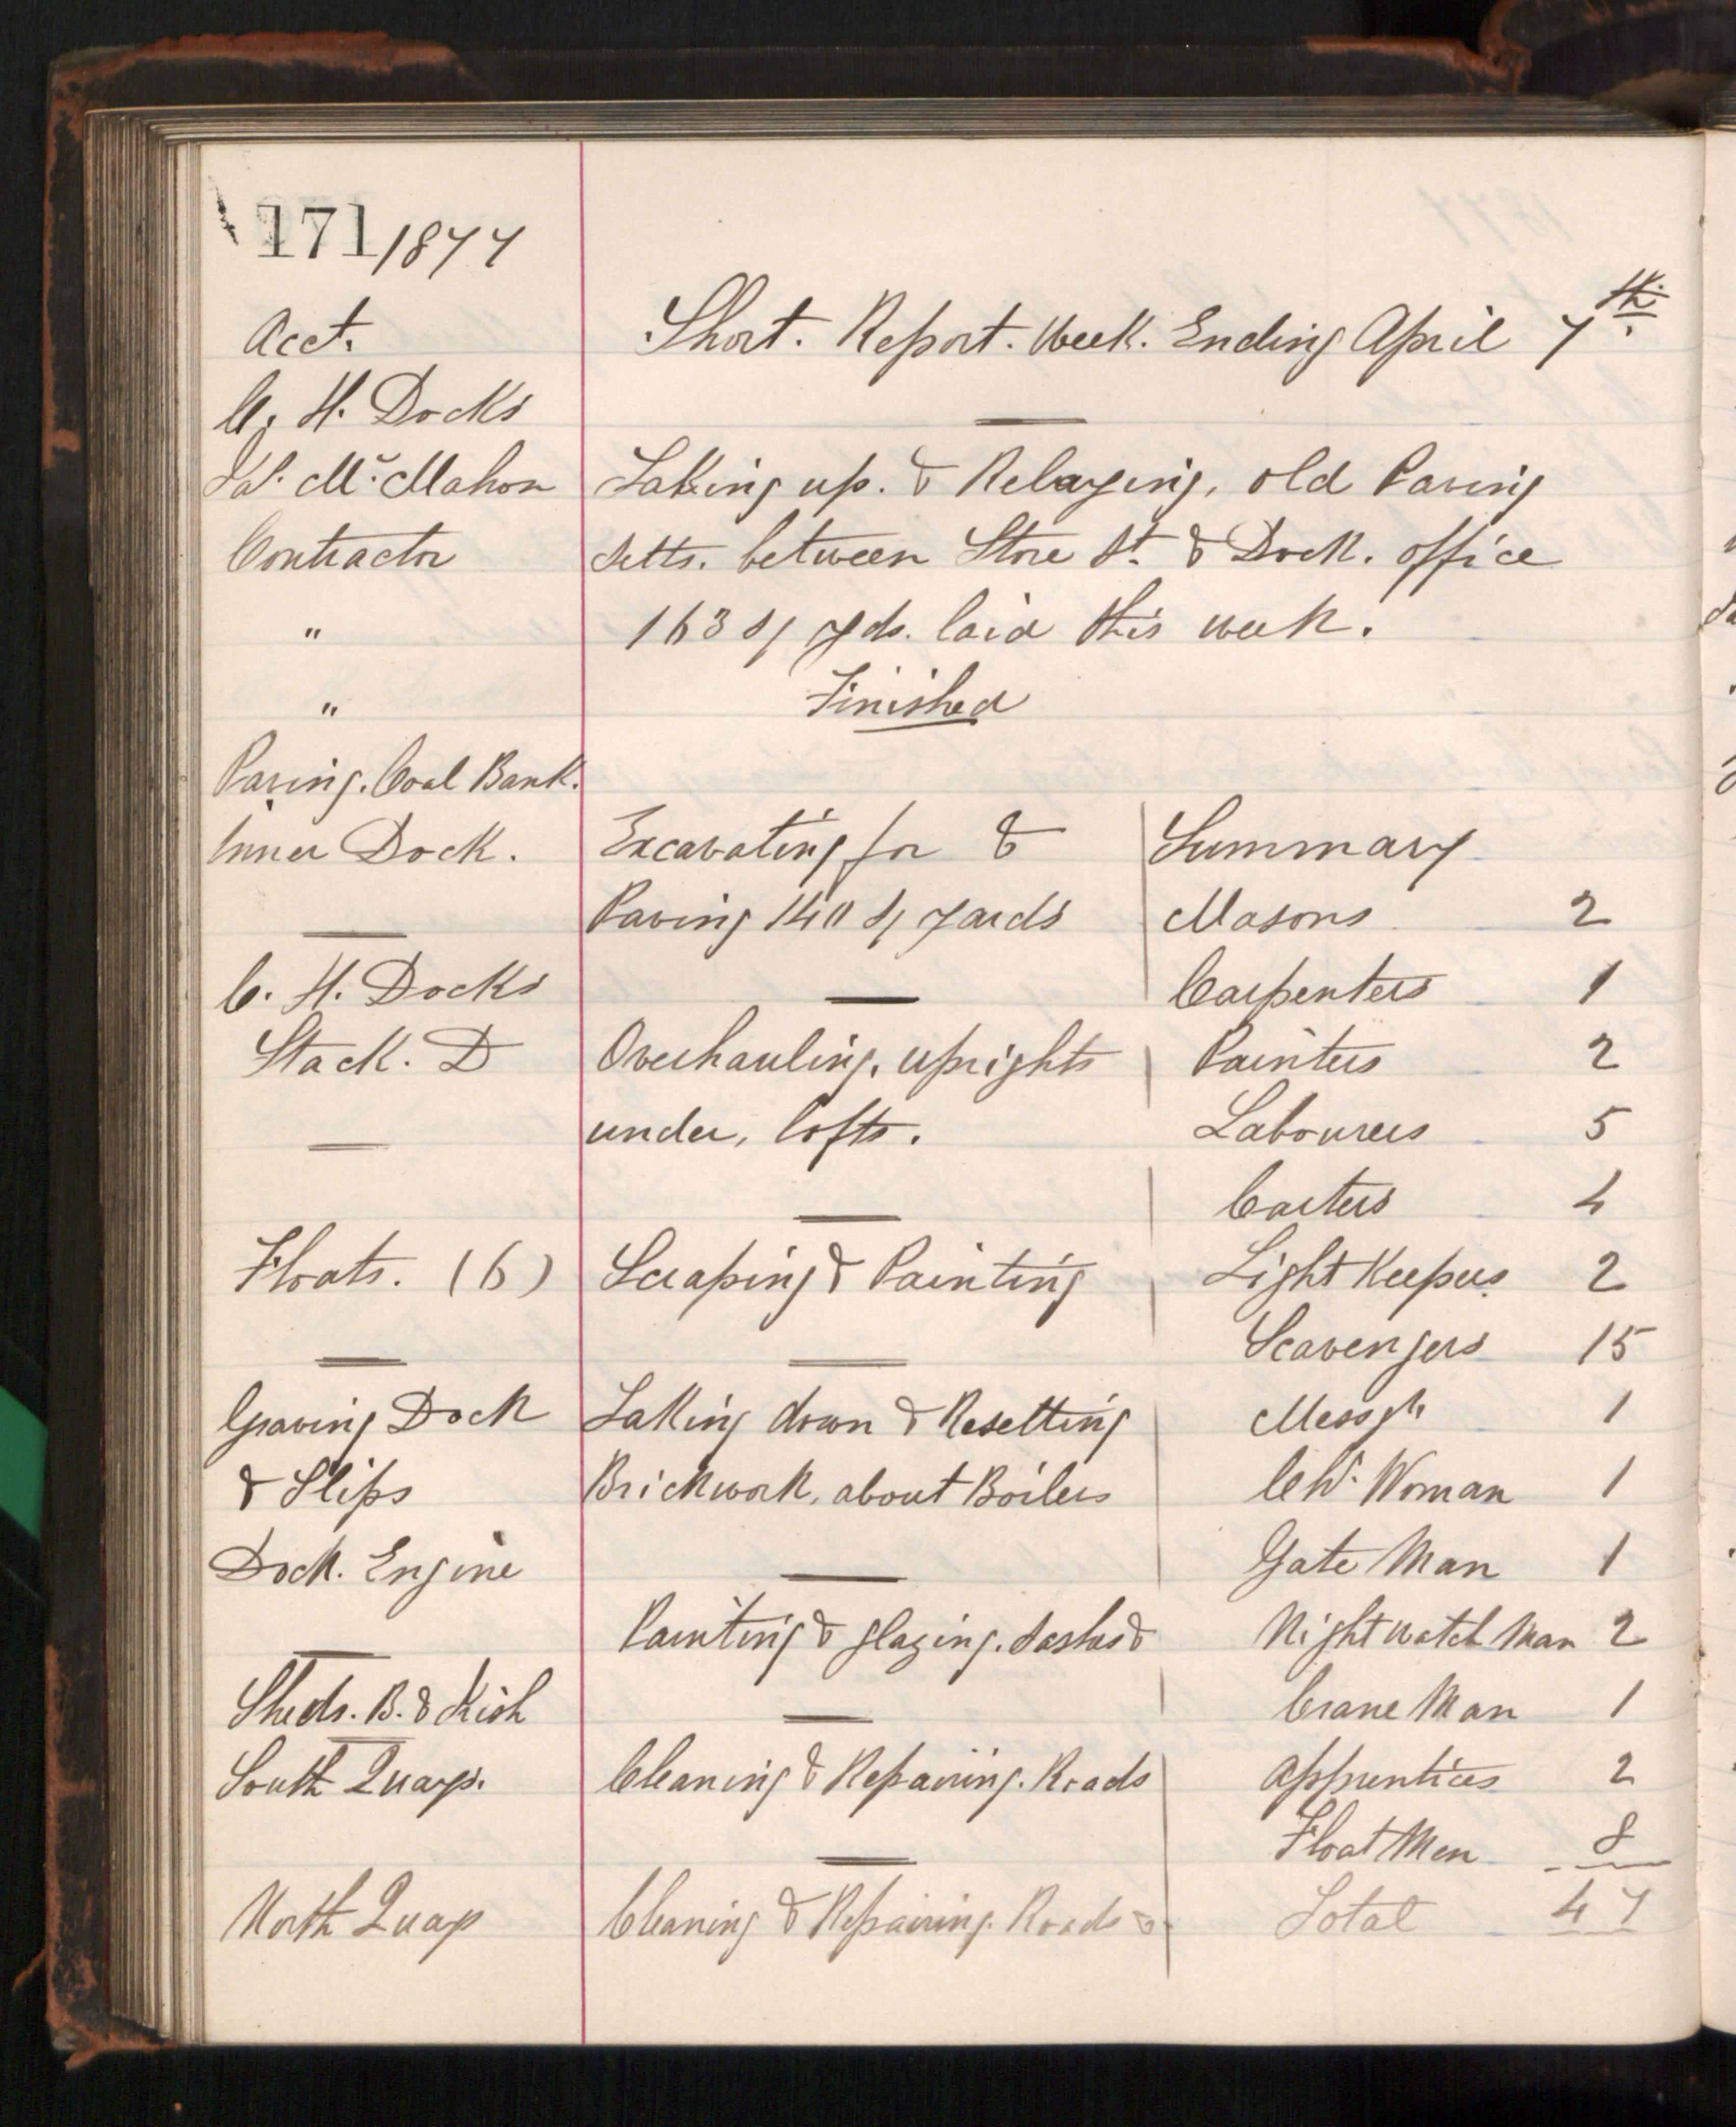 171 1877
Acct. Short. Report. Week. Ending April 7th
C. H. Docks
Js. McMahon Taking up. & Relaying, old Paving
Contractor Setts. between Store St. & Dock. office
" 163 Sq yds. laid this week.
" Finished
Paving. Coal Bank.
Inner Dock. Excavating for & Summary
Paving 140 Sq yards Masons 2
C. H. Docks Carpenters 1
Stack. D Overhauling. uprights Painters 2
under, lofts. Labourers 5
Carters 4
Floats. (6) Scraping & Painting Light Keepers 2
Scavengers 15
Graving Dock Taking down & Resetting Messgr 1
& Slips Brickwork, about Boilers Ch. Woman 1
Dock. Engine Gate Man 1
Painting & glazing. Sashes & Night Watch Man 2
Sheds. B. & Kish Crane Man 1
South Quays. Cleaning & Repairing. Roads apprentices 2
Float Men 8
North Quay Cleaning & Repairing. Roads & Total 47